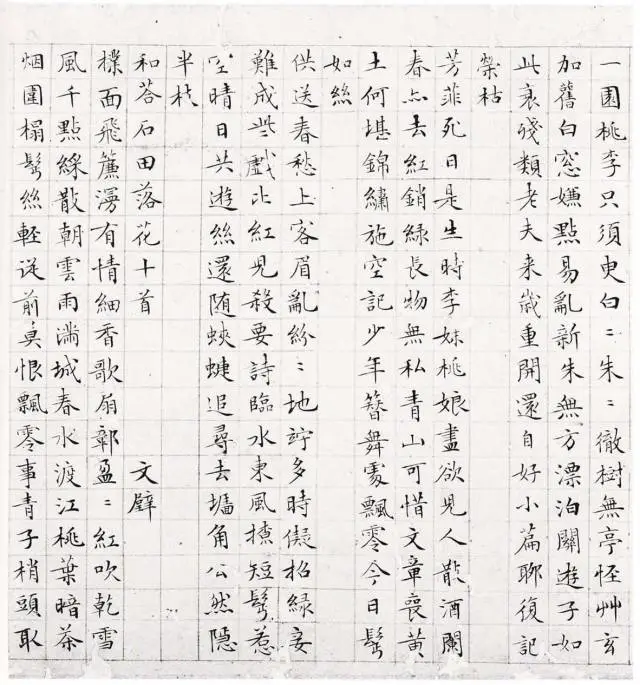 一園桃李只須臾白〻朱〻徹樹無亭怪艸玄
加舊白窓嫌點易亂新朱無方漂泊關遊子如
此衰殘類老夫来歲重開還自好小篇聊復記
榮枯
芳菲死日是生時李妹桃娘盡欲兒人散酒闌
春亦去紅銷緑長物無私青山可惜文章喪黄
土何堪錦繡施空記少年簪舞處飄零今日鬓
如絲
供送春愁上客眉亂紛〻地竚多時儗招緑妾
難成些戲比紅兒殺要詩臨水東風撩短鬓惹
空晴日共遊絲還随蛺蜨追尋去墻角公然隱
半枝
和荅石田落花十首 文壁
撲面飛簾漫有情細香歌扇鄣盈〻紅吹乾雪
風千點綵散朝雲雨滿城春水渡江桃葉暗茶
烟圍榻鬓絲輕從前莫恨飄零事青子梢頭取